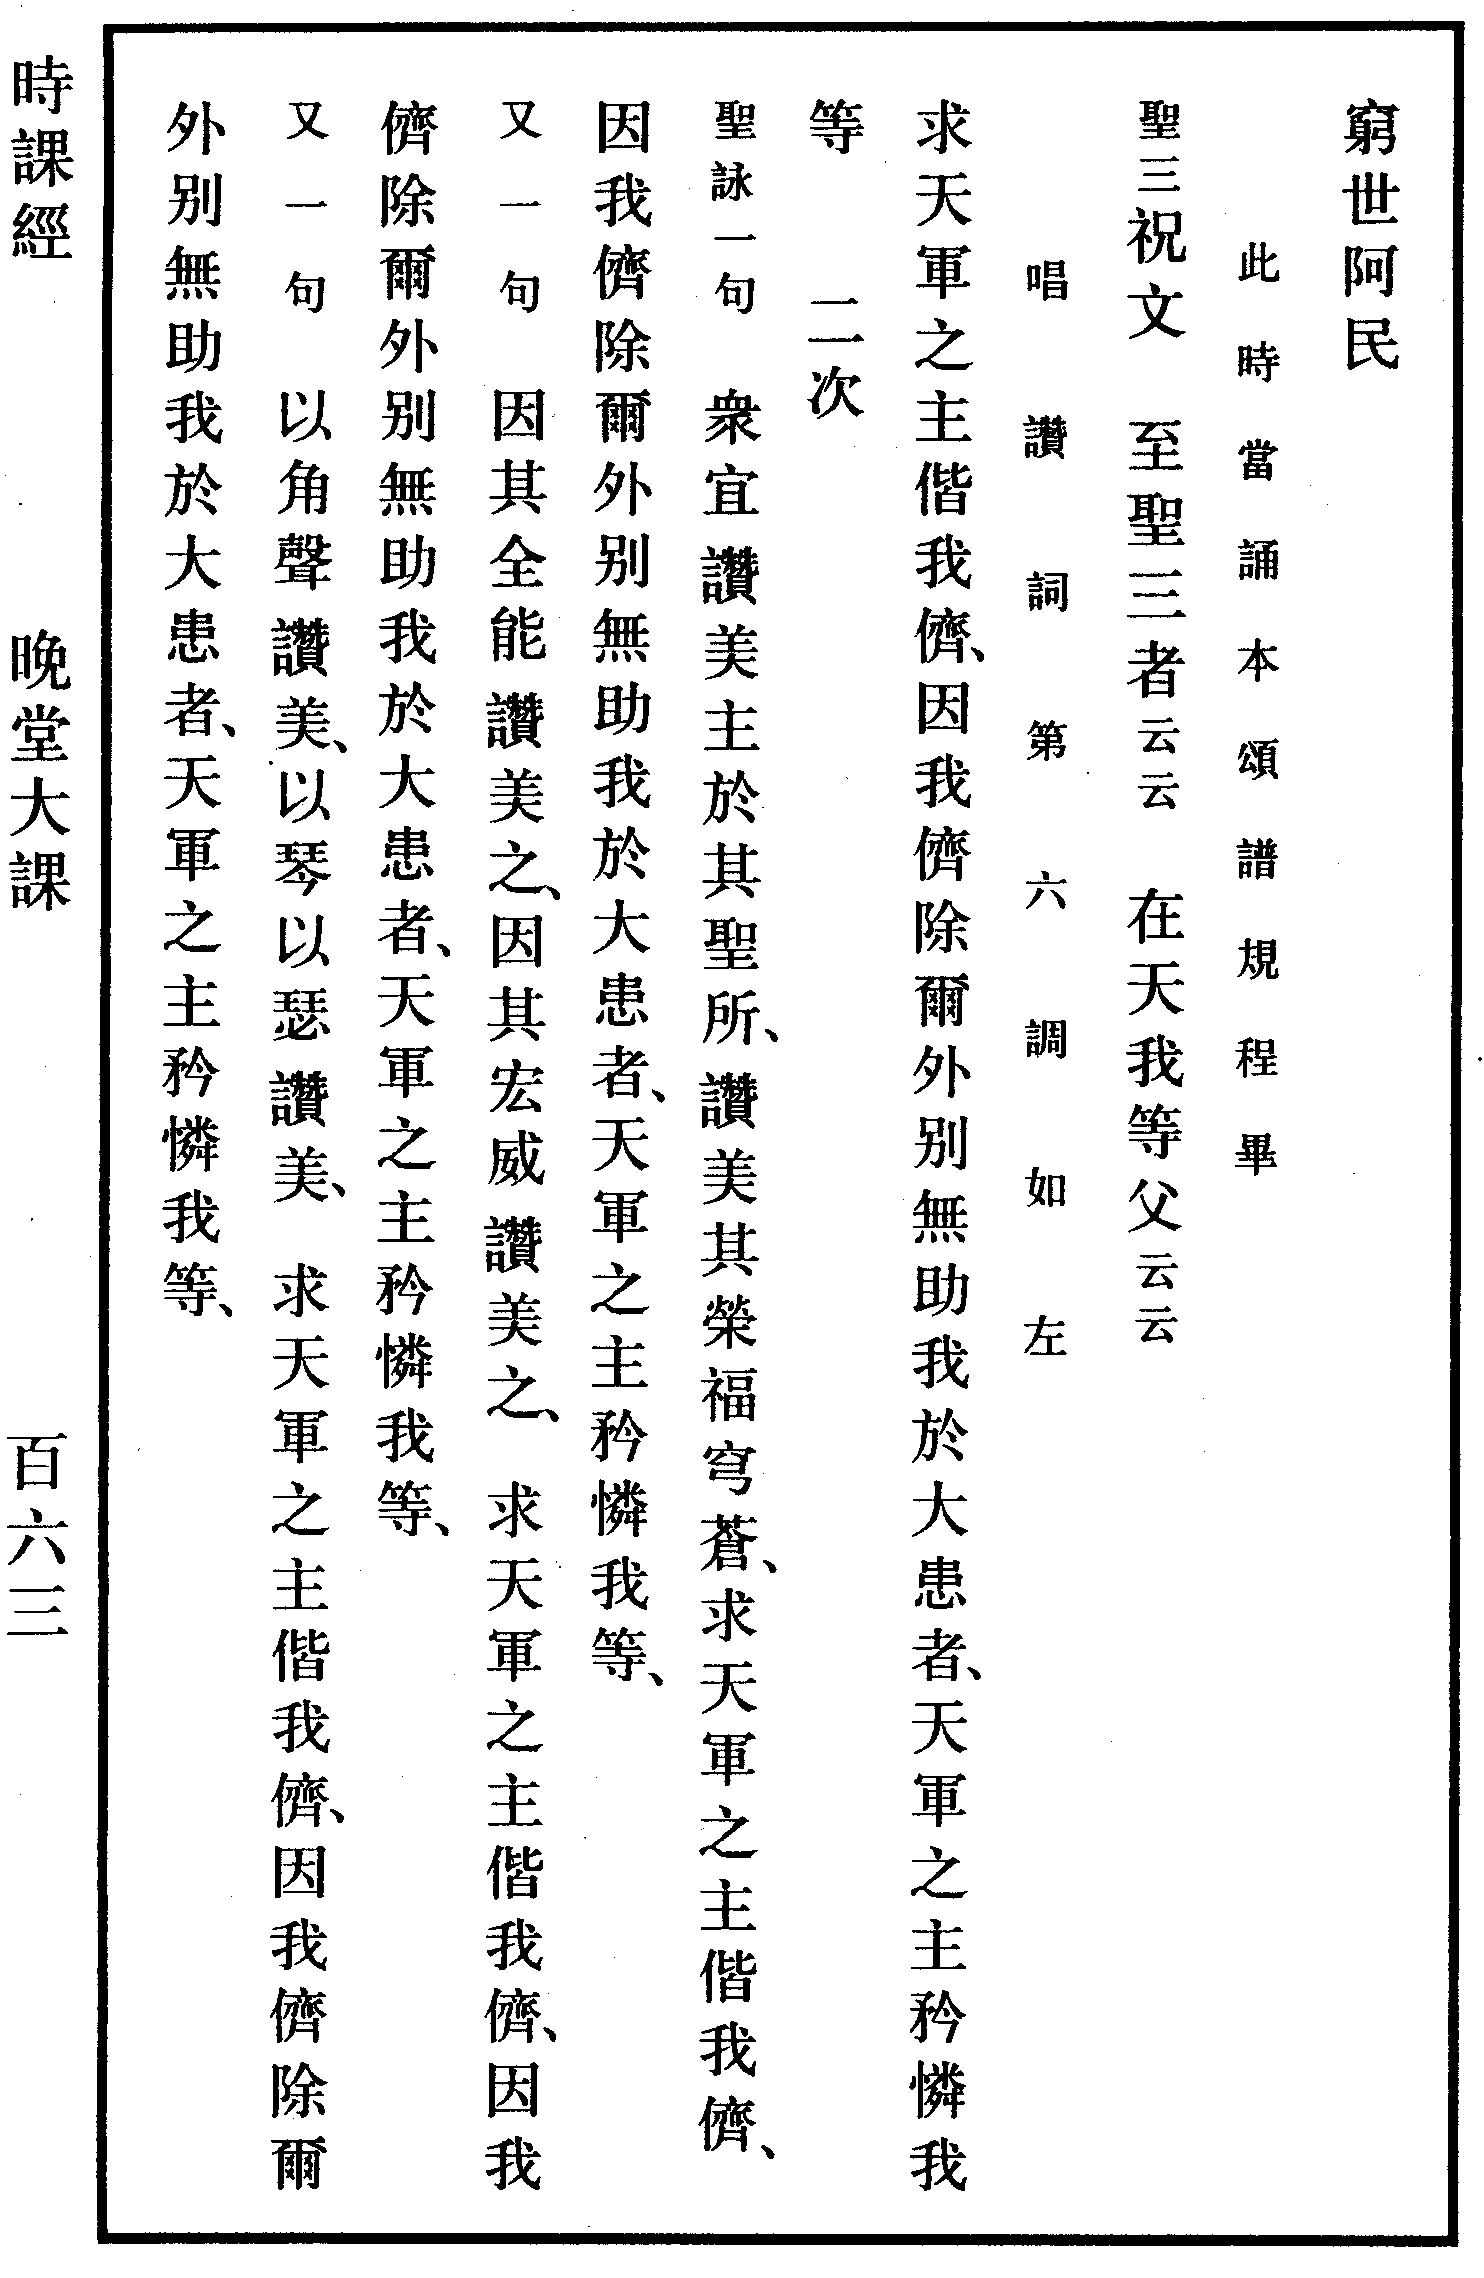 窮世阿民
此時當誦本頌譜規程畢
聖三祝文　至聖三者云云　在天我等父云云
唱讚詞第六調如左
求天軍之主偕我儕、因我儕除爾外別無助我於大患者、天軍之主矜憐我
等　二次
聖詠一句　衆宜讚美主於其聖所、讚美其榮福穹蒼、求天軍之主偕我儕、
因我儕除爾外別無助我於大患者、天軍之主矜憐我等、
又一句　因其全能讚美之、因其宏威讚美之、求天軍之主偕我儕、因我
儕除爾外別無助我於大患者、天軍之主矜憐我等、
又一句　以角聲讚美、以琴以瑟讚美、求天軍之主偕我儕、因我儕除爾
外別無助我於大患者、天軍之主矜憐我等、
時課經　晚堂大課　百六三